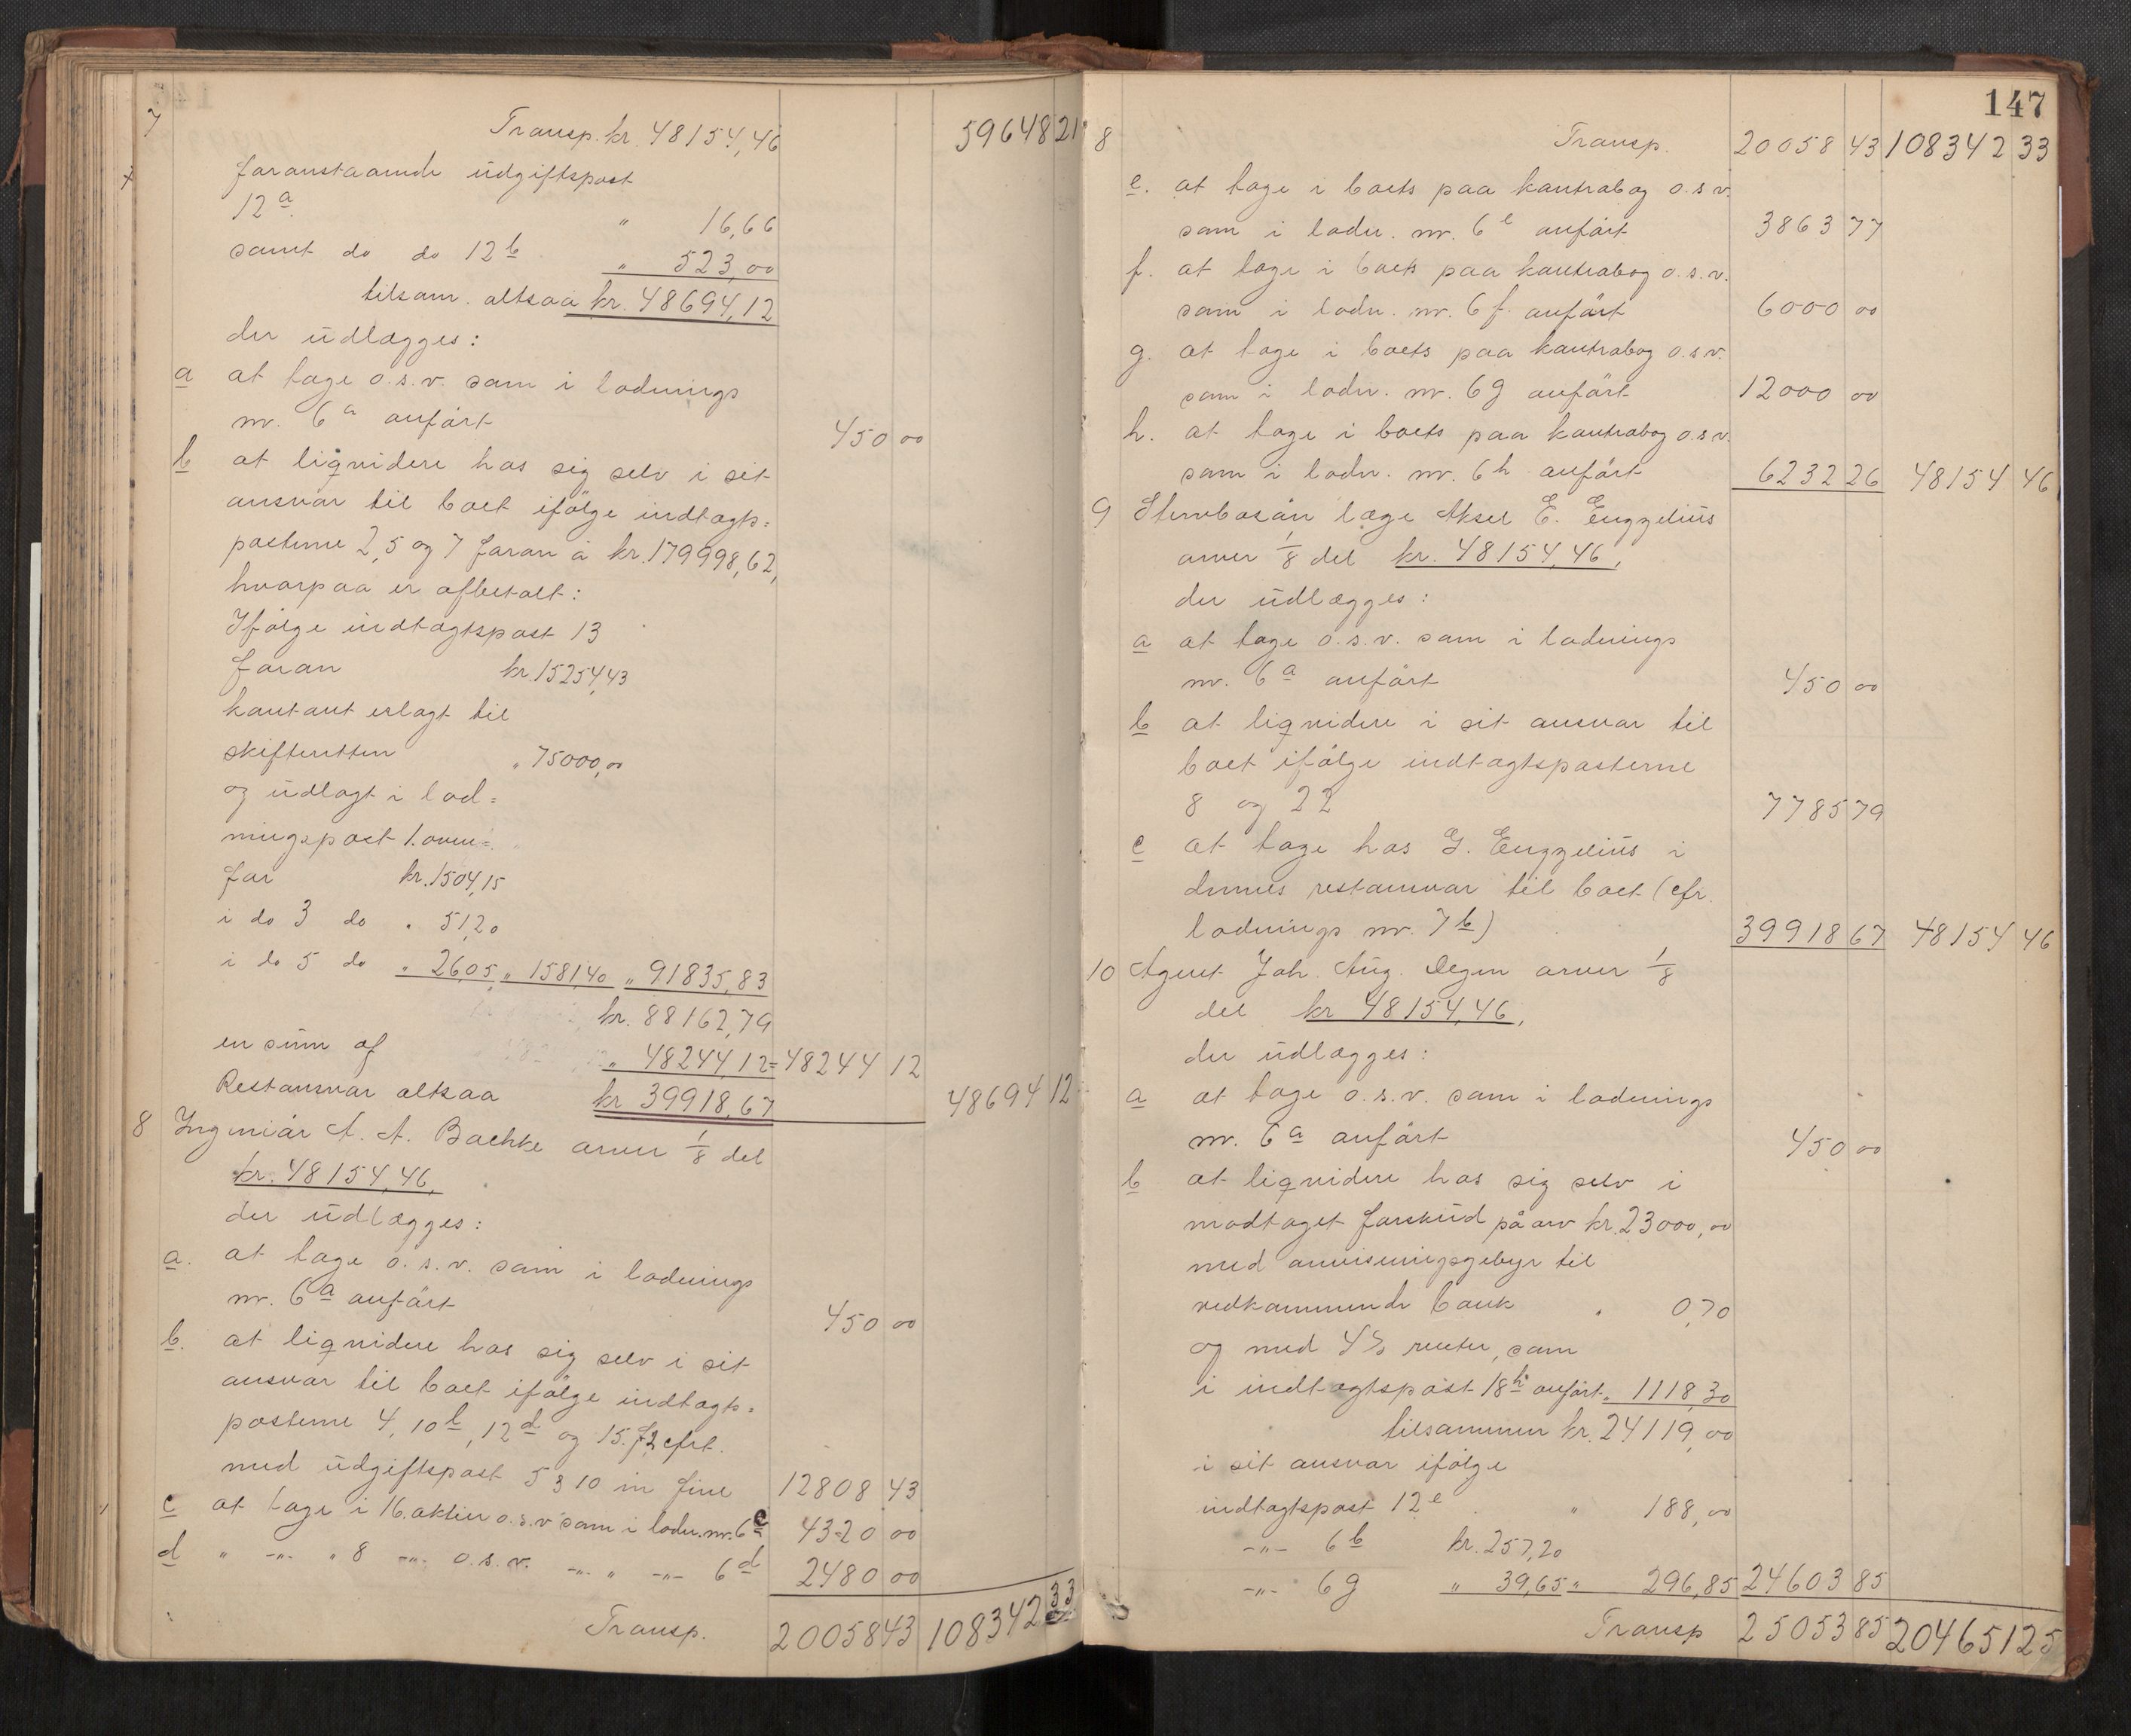 7 Transp. kr. 48154,46 59648 21
foranstaaende udgiftspost
12a " 16,66
samt do do 12b " 523,00
tilsam. altsaa kr. 48694,12
der udlægges:
a at tage o.s.v. som i lodnings
nr. 6a anført 450 00
b at liqvidere hos sig selv i sit
ansvar til boet ifølge indtægts=
posterne 2, 5 og 7 foran à kr. 179998,62,
hvorpaa er afbetalt:
Ifølge indtægtspost 13
foran kr. 15254,43
kontant erlagt til
skifteretten " 75000,00
og udlagt i lod=
ningspost 1. oven=
for kr. 1504,15
i do 3 do " 51,20
i do 5 do " 26,05 " 1581,40 " 91835,83
kr. 88162,79
en sum af " 48244,12= 48244 12
Restansvar altsaa kr 39918,67 48694 12
8 Ingeniør A. A. Bachke arver 1/8 del
kr. 48154,46,
der udlægges:
a. at tage o.s.v. som i lodnings
nr. 6a anført 450 00
b. at liqvidere hos sig selv i sit
ansvar til boet ifølge indtægts=
posterne 4, 10b, 12d og 15. f2 cfrt.
med udgiftspost 5 3 10 in fine 12808 43
c at tage i 16. aktier o.s.v. som i lodn. nr. 6c 4320 00
d " -"- " 8 -"- o.s.v. -"- " -"- 6d 2480 00
Transp. 20058 43 108342 33
147
8 Transp. 20058 43 108342 33
e. at tage i boets paa kontrabog o.s.v.
som i lodn. nr. 6e anført 3863 77
f. at tage i boets paa kontrabog o.s.v.
som i lodn. nr. 6f. anført 6000 00
g. at tage i boets paa kontrabog o.s.v.
som i lodn. nr. 6g anført 12000 00
h. at tage i boets paa kontrabog o.s.v.
som i lodn. nr. 6h anført 6232 26 48154 46
9 Stervbosøn læge Aksel E. Engzelius
arver 1/8 del kr. 48154,46,
der udlægges:
a at tage o.s.v. som i lodnings
nr. 6a anført 450 00
b at liqvidere i sit ansvar til
boet ifølge indtægtsposterne
8 og 22 7785 79
c at tage hos G. Engzelius i
dennes restansvar til boet (cfr.
lodnings nr. 7b) 39918 67 48154 46
10 Agent Joh. Aug. Degen arver 1/8
del kr 48154,46,
der udlægges:
a at tage o.s.v. som i lodnings
nr. 6a anført 450 00
b at liqvidere hos sig selv i
modtaget forskud på arv kr. 23000,00
med anvisningsgebyr til
vedkommende bank " 0,70
og med 4% renter, som
i indtægtspost 18h anført " 1118,30
tilsammen kr. 24119,00
i sit ansvar ifølge
indtægtspost 12e " 188,00
-"- 6b kr. 257,20
-"- 6g " 39,65 " 296,85 24603 85
Transp 25053 85 204651 25